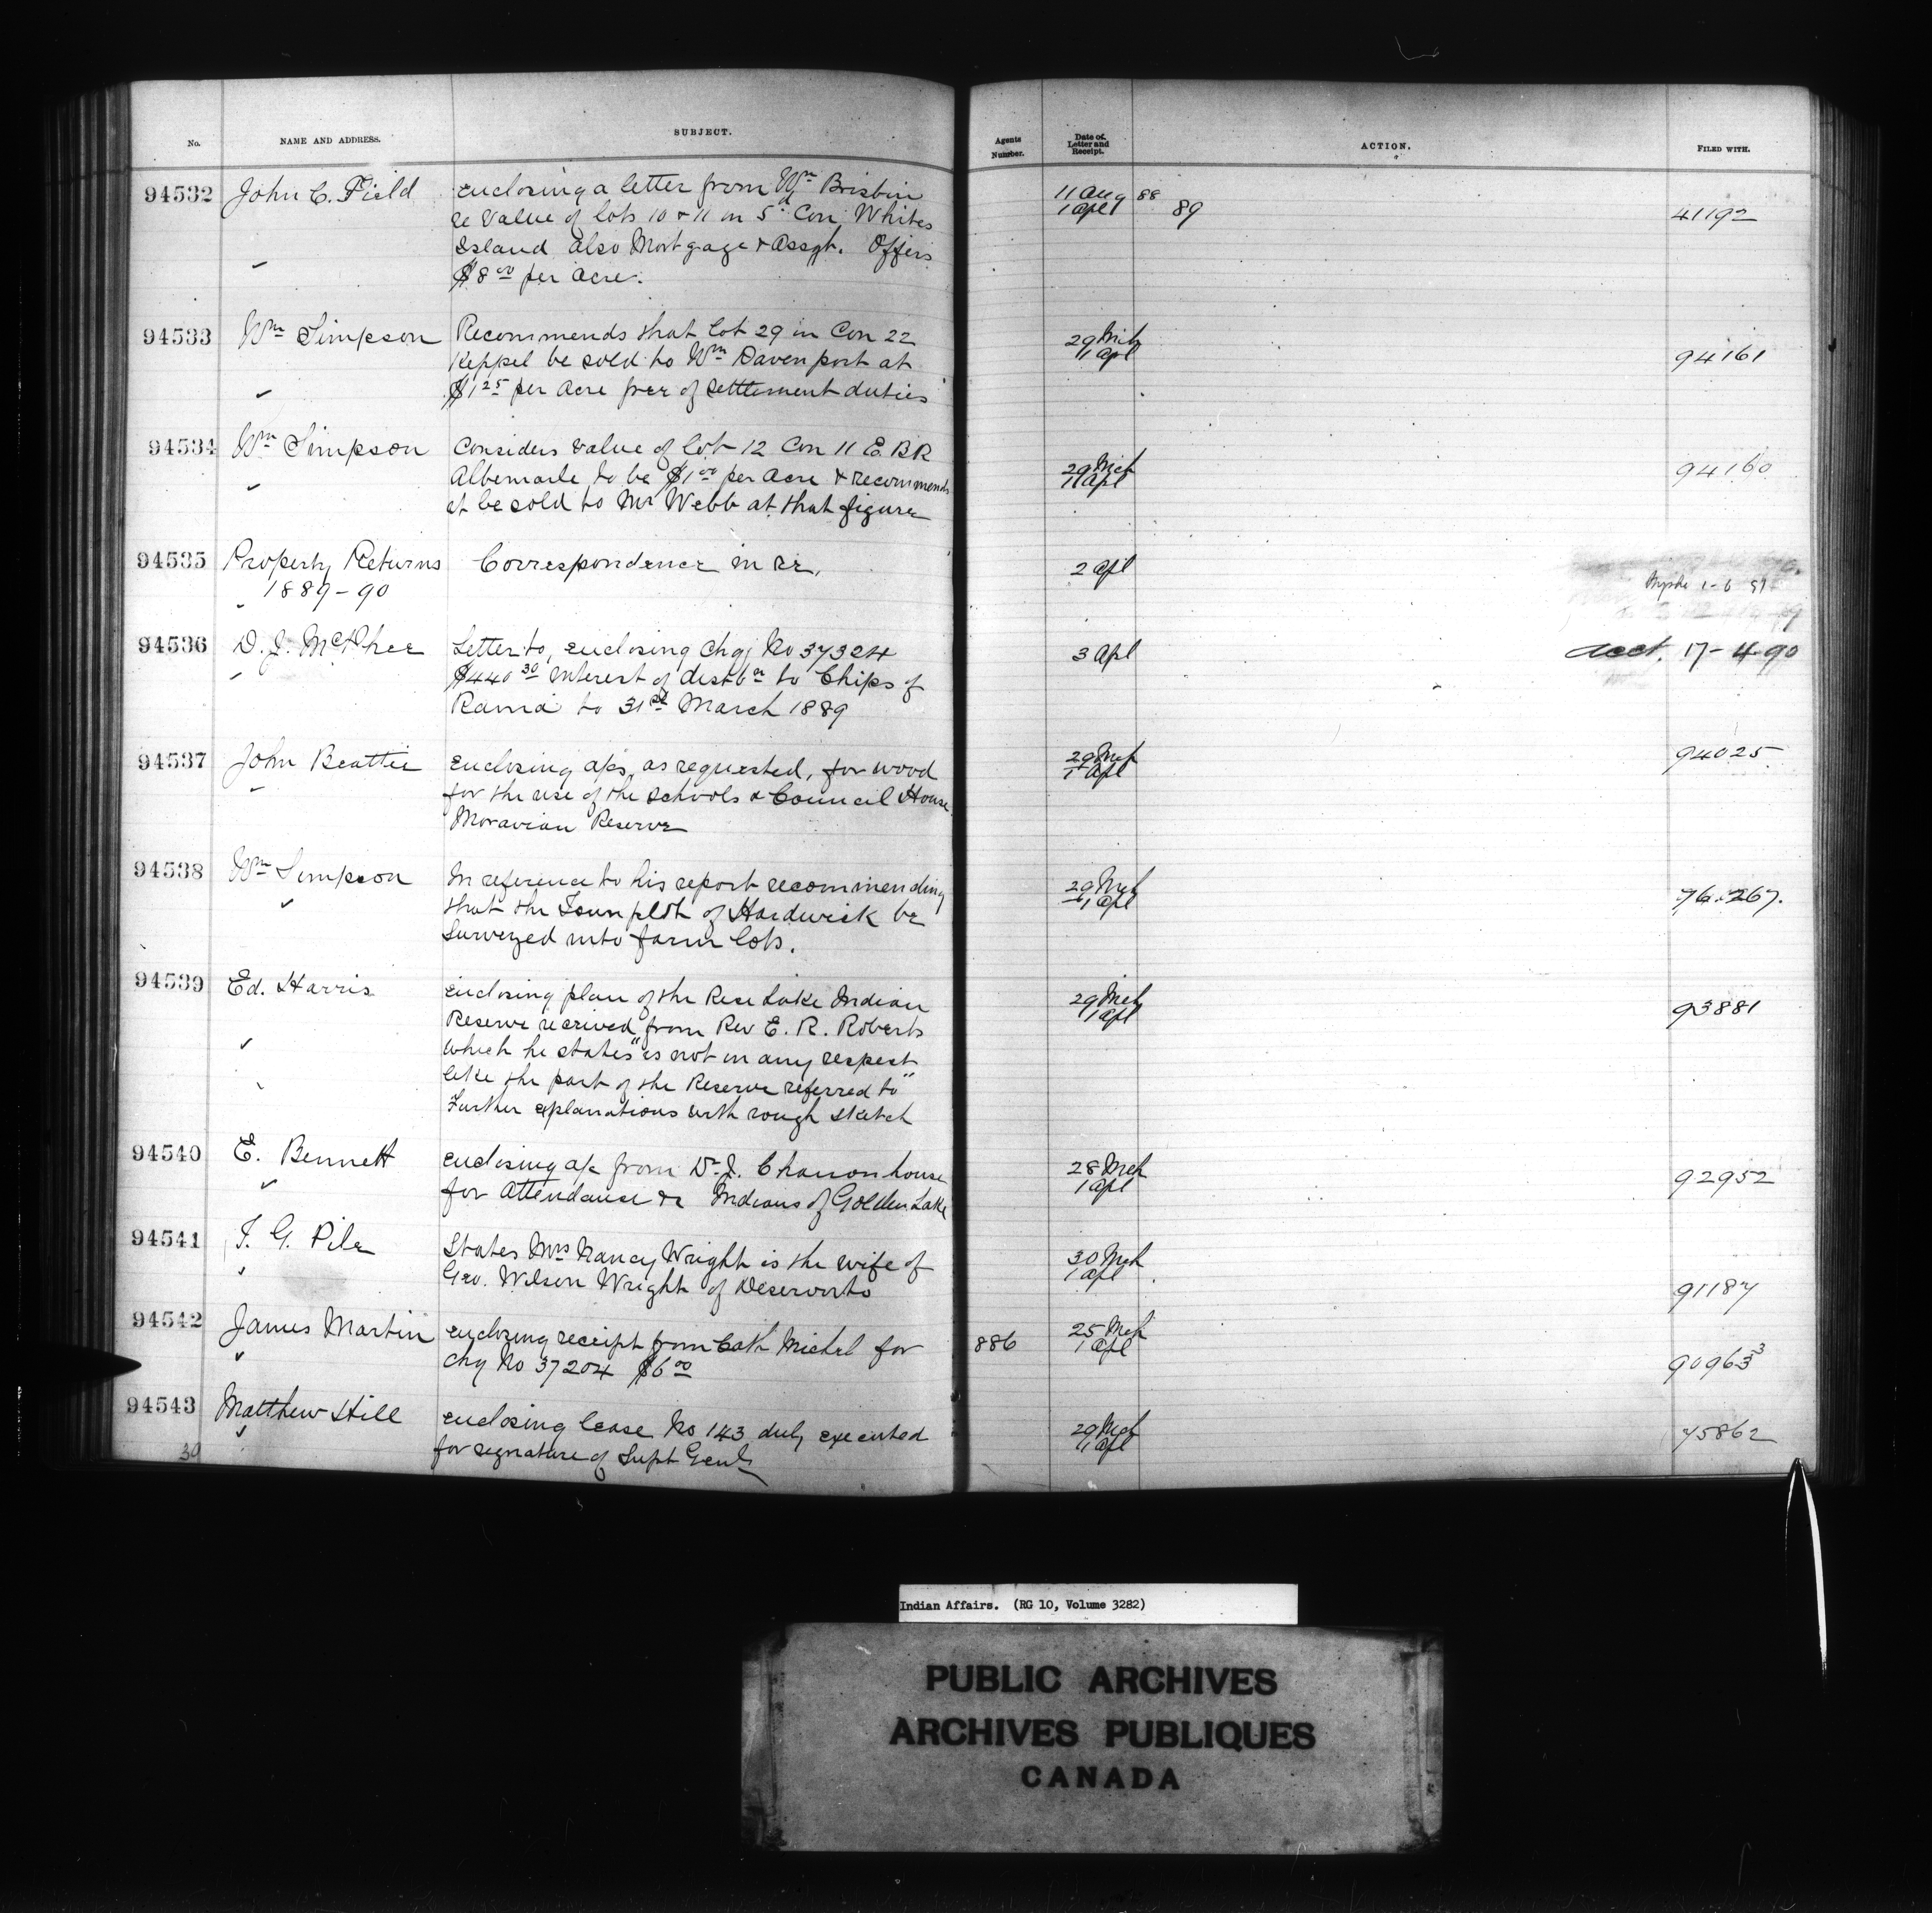 No. NAME AND ADDRESS. SUBJECT. Agents Number. Date of Letter and Receipt. ACTION. FILED WITH.
94532 John C. Field enclosing a letter from Wm Brisbin 11 Aug 88
re Value of lots 10 & 11 in 5d Con Whites 1 Apl 89 41192
Island also Mortgage & Assgt. Offers
$8 00 per acre.
94533 Wm Simpson Recommends that lot 29 in Con 22 29 Mch
Keppel be sold to Wm Davenport at 1 Apl 94161
$1 25 per acre free of settlement duties
94534 Wm Simpson Considers value of lot 12 Con 11 E. B R
Albemarle to be $1 00 per acre & recommends 29 Mch 94160
it be sold to Mr Webb at that figure 1 Apl
94535 Property Returns Correspondence in re. 2 Apl
1889-90 1-6
94536 D. J. McPhee Letter to, enclosing chq No 37324 3 Apl acct. 17-4-90
$440 30 Interest of distbn to Chips of
Rama to 31st March 1889
94537 John Beattie enclosing a/cs, as requested, for wood 29 Mch 94025
for the use of the schools & Council House 1 Apl
Moravian Reserve
94538 Wm Simpson In reference to his report recommending 29 Mch
that the Town plot of Hardwick be 1 Apl 76.267.
surveyed into farm lots.
94539 Ed. Harris enclosing plan of the Rice Lake Indian 29 Mch
Reserve received from Rev E. R. Roberts 1 Apl 93881
which he states "is not in any respect
like the part of the Reserve referred to"
Further explanations with rough sketch
94540 E. Bennett enclosing a/c from Dr. J. Channonhouse 28 Mch
for attendance re Indians of Golden Lake 1 Apl 92952
94541 T. G. Pile States Mrs Nancy Wright is the wife of 30 Mch
Geo. Wilson Wright of Deseronto 1 Apl 91187
94542 James Martin enclosing receipt from Cath Michel for 886 25 Mch
chq No 37204 $6 00 1 Apl 90963 3
94543 Matthew Hill enclosing lease No 143 duly executed 29 Mch 75862
39 for signature of Supt Genl 1 Apl
Indian Affairs. (RG 10, Volume 3282)
PUBLIC ARCHIVES
ARCHIVES PUBLIQUES
CANADA